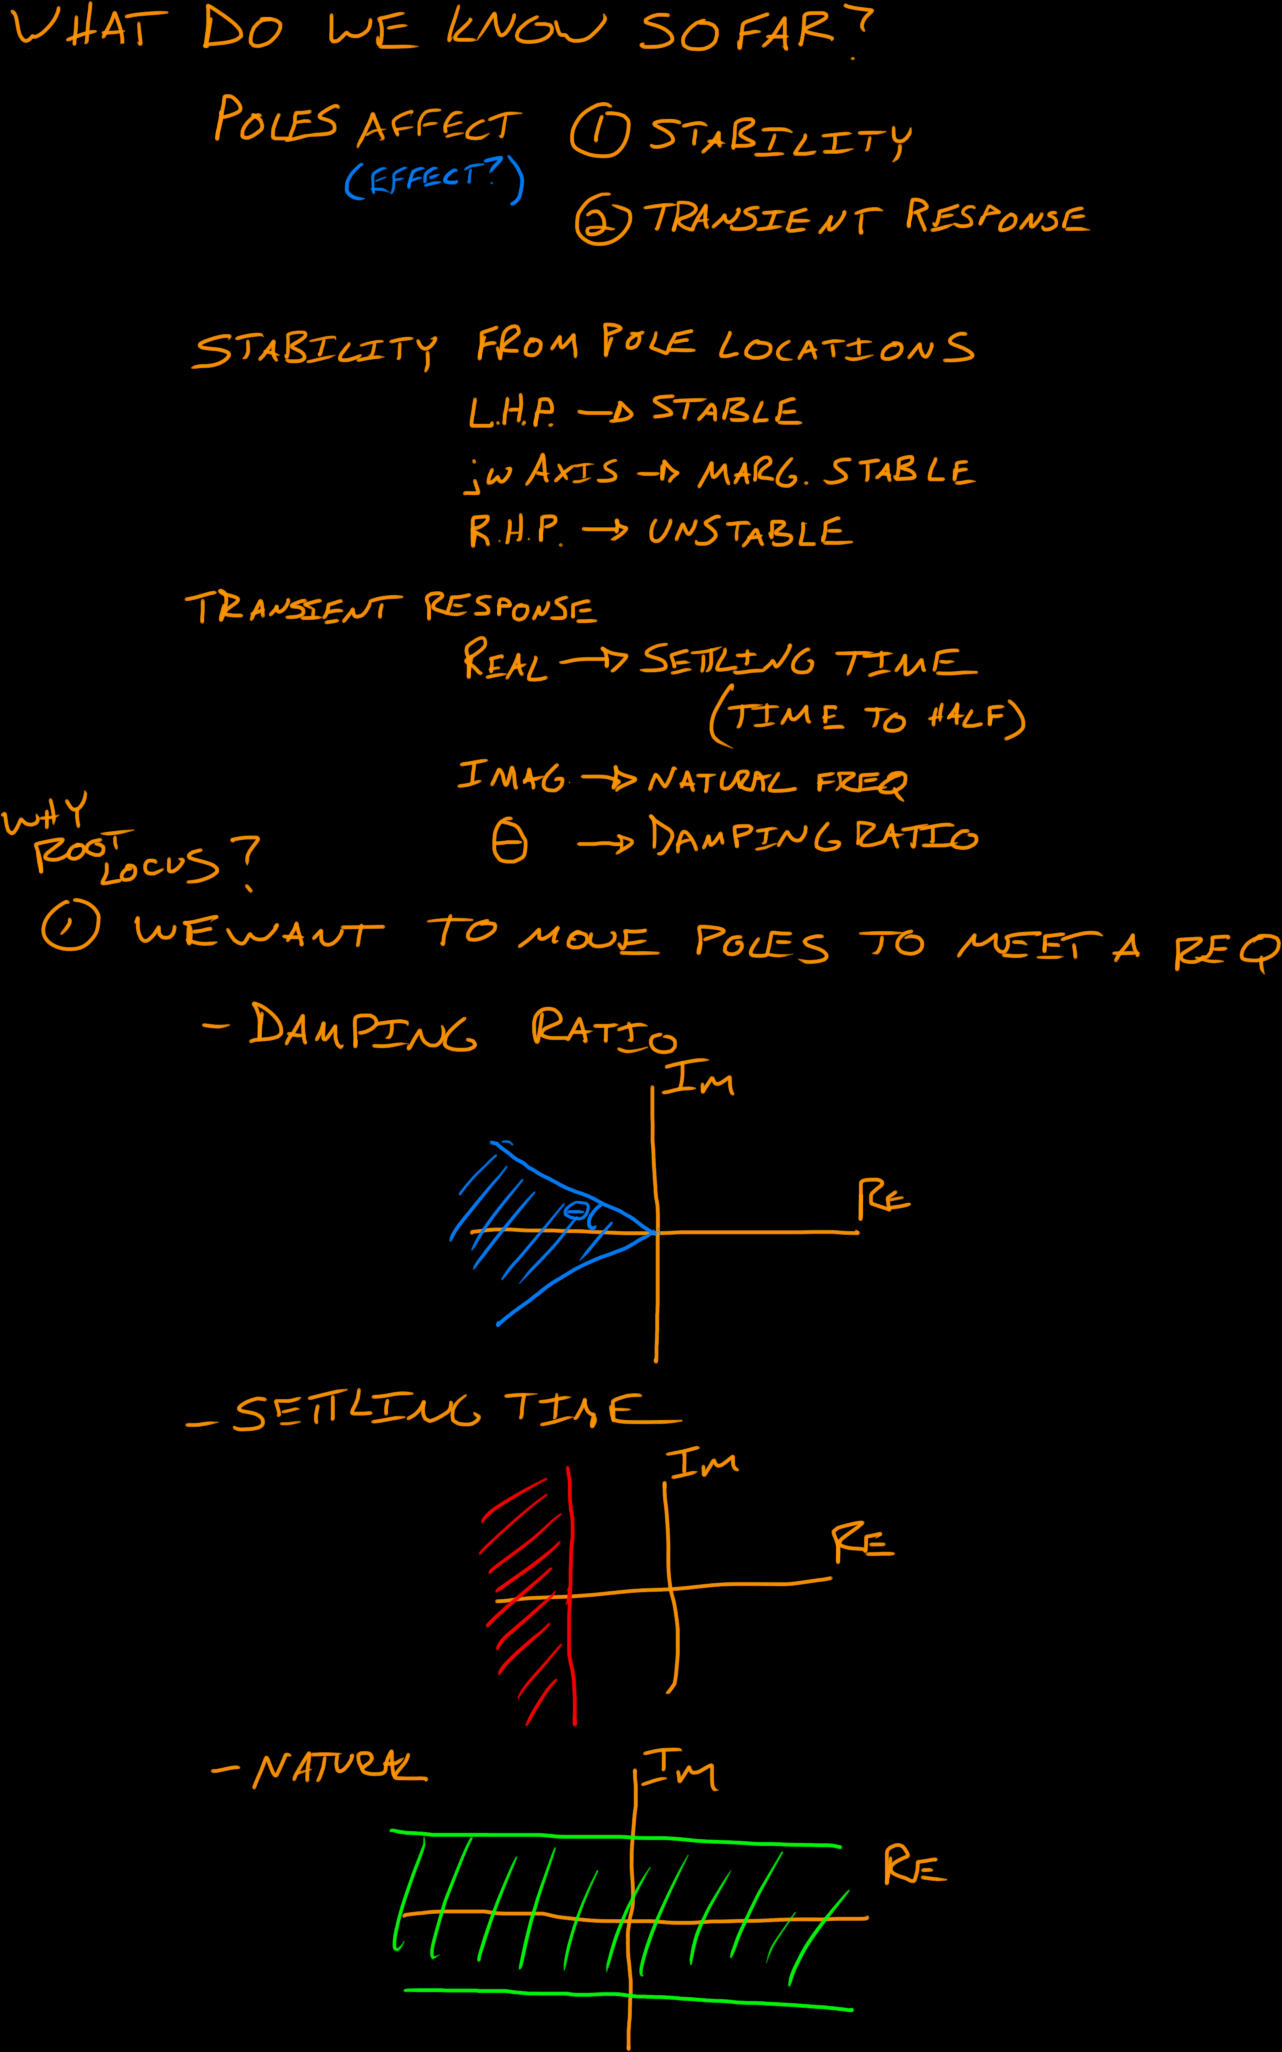 WHAT DO WE KNOW SO FAR?
POLES AFFECT ① STABILITY
(EFFECT?)
② TRANSIENT RESPONSE
STABILITY FROM POLE LOCATIONS
L.H.P. → STABLE
jω AXIS → MARG. STABLE
R.H.P. → UNSTABLE
TRANSIENT RESPONSE
REAL → SETTLING TIME
(TIME TO HALF)
IMAG. → NATURAL FREQ
θ → DAMPING RATIO
WHY
ROOT
LOCUS?
① WE WANT TO MOVE POLES TO MEET A REQ
- DAMPING RATIO
Im
θ
RE
- SETTLING TIME
Im
RE
- NATURAL
Im
RE